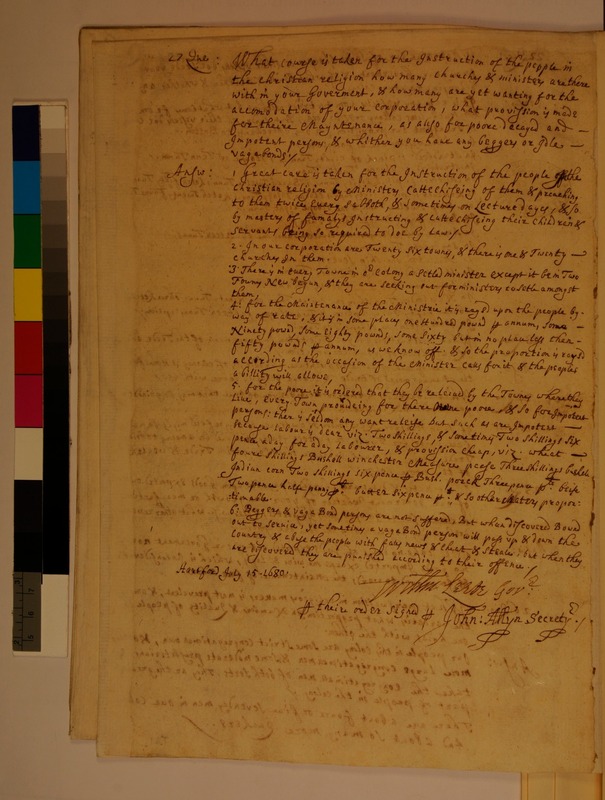 27 Que: What course is taken for the Instruction of the people in
the christian religion how many churches & ministers are there
with in your Goverment, & how many are yet wanting for the
accomodation of your corporation, what provission is made
for theire Mayntenance, as also for poore decayed and
Impotent persons, & whither you have any beggers or Idle
vagabonds/
Answ: 1 Great care is taken for the Instruction of the people of the
christian religion by Ministers Cattechiseing of them & preaching
to them twice every sabboth, & sometimes on Lecture dayes, & so
by masters of familys Instructing, & cattechiseing their children &
servants being so required to doe by Law/
2. In our corporation are Twenty six townes, & there is one & Twenty
churches In them.
3 There is in every Towne in ye colony a setled minister except it be in Two
Townes New begun, & they are seeking out for ministers to setle amongst
them.
4 for the Maintenance of the Ministrie it is rayd upon the people by
way of rate, & it is in some places one Hundred pownd p annum, some
Ninety pownd, some Eighty pounds, some sixty but in no place less then
fifty pounds p annum, as we know off & so the proportion is rayd
according as the occasion of the Minister calls for it & the peoples
abillity will allowe,
5. for the poore it is ordered that they be releived by the Townes where they
live, every Town provideing for there owne poore, & so for Impotent
persons: ther is seldom any want releife but such as are Impotent
because labour is dear viz: Two shillings, & sometimes Two shillings six
pence a day for a day labourer, & provission cheap, viz: wheat
foure shillings Bushell winchester Measure, pease Three shillings bushell
Indian corn Two shillings six pence p Bush. poark Three pence p lb: beife
Two pence half peny p lb. butter six pence p lb, & so other Maters propor:
tionable.
6: Beggers & vagabond persons are not suffered, But when discovered Bound
out to service; yet sometimes a vagabond person will pass up & down the
Country & abuse the people with false news & cheat & steale: but when they
are discovered they are punished according to their offence/
Hartford July 15-1680:
William Leete Govr.
p their order signed p John: Allyn Secrety/